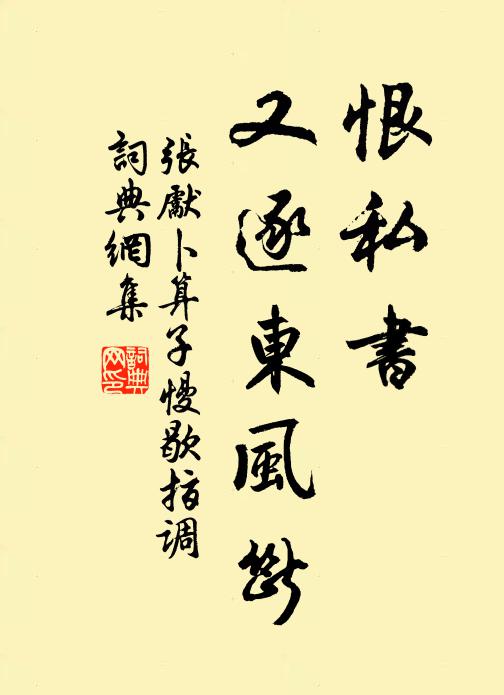 恨私書
又逐東風斷
張獻卜算子慢歇指調
詞典網集
詞典
网印